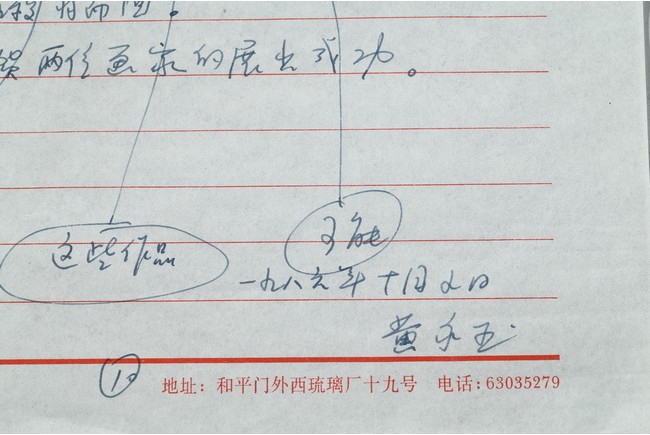 两位画家的展出成功。
这些作品
能
一九八六年十月 日
黄永玉
地址：和平门外西琉璃厂十九号 电话：63035279